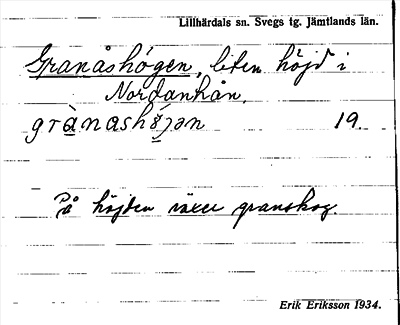 Lillhärdals sn. Svegs tg. Jämtlands län.
Granåshögen, liten höjd i
Nordanhån.
19.
På höjden växer granskog.
Erik Eriksson 1934.